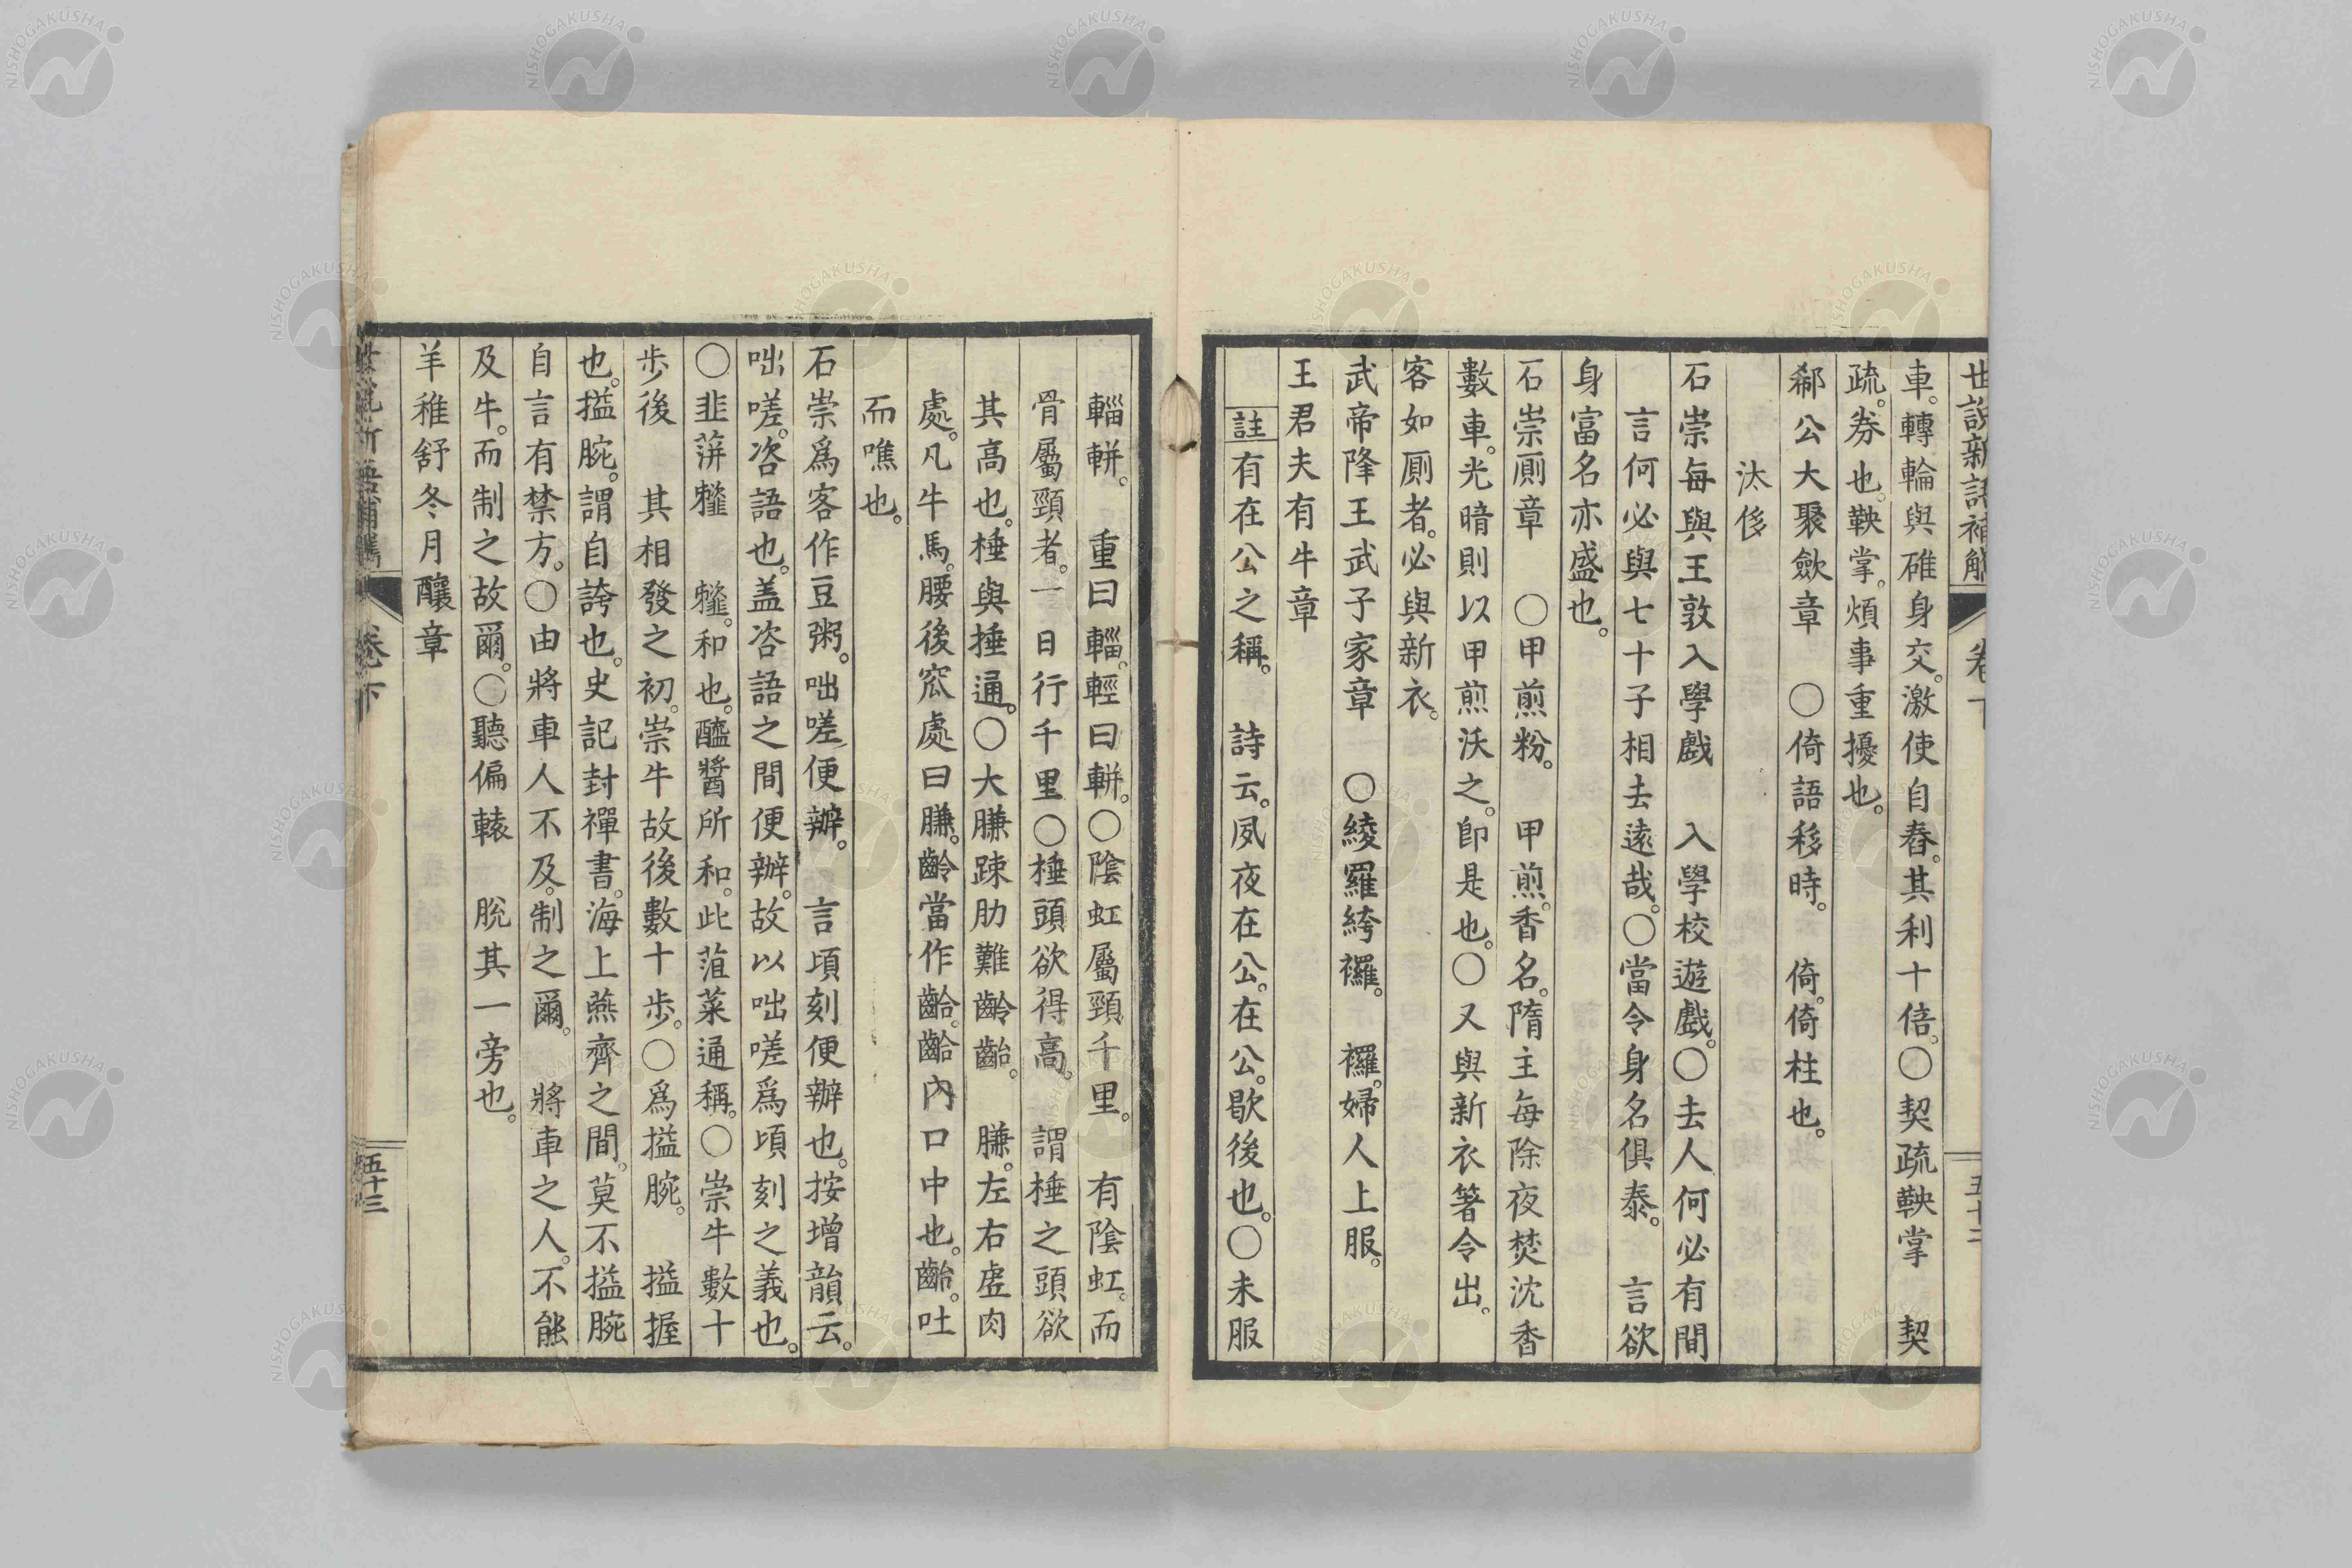 世説新語補觽 卷下 五十三
車。轉輪與碓身交。激使自舂。其利十倍。〇契疏鞅掌 契
疏。券也。鞅掌。煩事重擾也。
郗公大聚歛章 〇倚語移時。 倚。倚柱也。
汰侈
石崇每與王敦入學戲 入學校遊戲。〇去人何必有間
言何必與七十子相去遠哉。〇當令身名俱泰。 言欲
身富名亦盛也。
石崇厠章 〇甲煎粉。 甲煎。香名。隋主每除夜焚沈香
數車。光暗則以甲煎沃之。卽是也。〇又與新衣箸令出。
客如厠者。必與新衣。
武帝降王武子家章 〇綾羅絝䙨。 䙨。婦人上服。
王君夫有牛章
註有在公之稱。 詩云。夙夜在公。在公。歇後也。〇未服
輜軿。 重曰輜。輕曰軿。〇陰虹屬頸千里。 有陰虹。而
骨屬頸者。一日行千里〇棰頭欲得高。 謂棰之頭欲
其高也。棰與捶通。〇大膁踈肋難齡齝。 膁。左右虛肉
處。凡牛馬。腰後窊處曰膁。齡當作齝。齝內口中也。齝。吐
而噍也。
石崇爲客作豆粥。咄嗟便辦。 言頃刻便辦也。按增韻云。
咄嗟。咨語也。盖咨語之間便辦。故以咄嗟爲頃刻之義也。
〇韭蓱虀 虀。和也。醯醬所和。此菹菜通稱。〇崇牛數十
步後 其相發之初。崇牛故後數十步。〇爲搤腕。 搤握
也。搤腕。謂自誇也。史記封禪書。海上燕齊之間。莫不搤腕
自言有禁方。〇由將車人不及。制之爾。 將車之人。不能
及牛。而制之故爾。〇聽偏轅 脫其一旁也。
羊稚舒冬月釀章
世說新語補觽 卷下 五十三